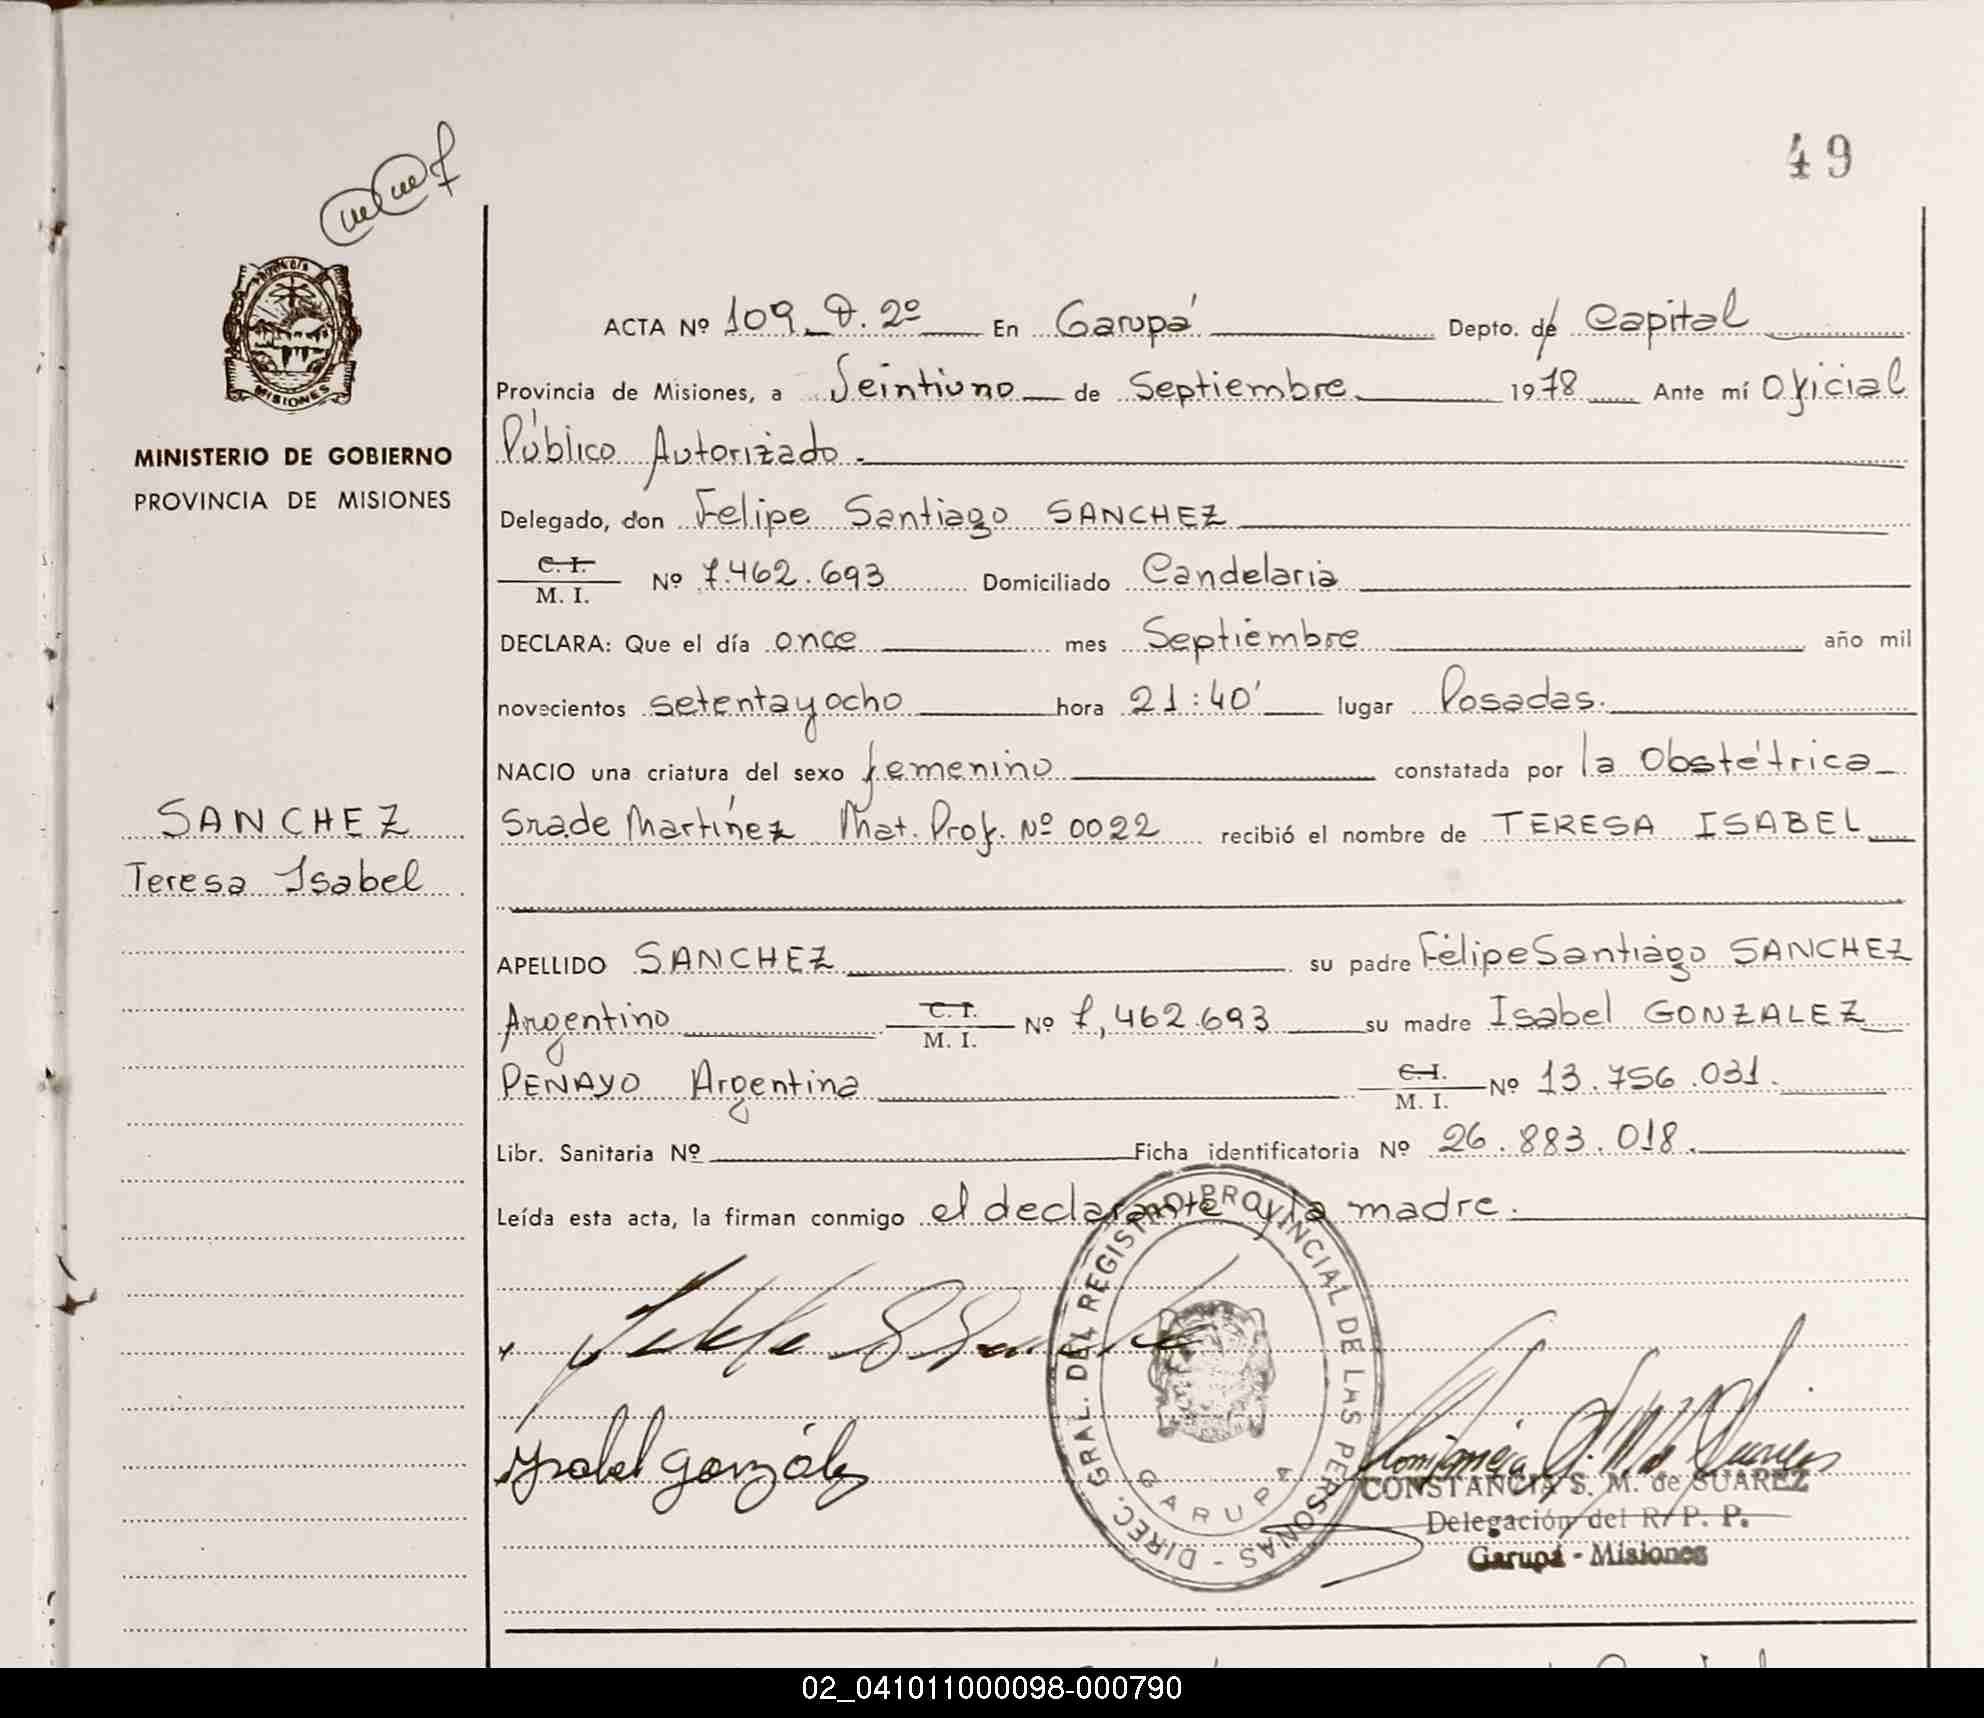 49
ACTA Nº 109_ D. 2º En Garupá Depto. de Capital
Provincia de Misiones, a Veintiuno de Septiembre 1978 Ante mí Oficial
Público Autorizado.
Delegado, don Felipe Santiago SANCHEZ
C. I.
M. I. Nº 7.462.693 Domiciliado Candelaria
DECLARA: Que el día once mes Septiembre año mil
novecientos setentayocho hora 21:40' lugar Posadas.
NACIO una criatura del sexo femenino constatada por la Obstétrica
Srade Martínez Mat. Prof. Nº 0022 recibió el nombre de TERESA ISABEL
APELLIDO SANCHEZ su padre Felipe Santiago SANCHEZ
Argentino C. I.
M. I. Nº 7,462.693 su madre Isabel GONZALEZ
PENAYO Argentina C. I.
M. I. Nº 13.756.031.
Libr. Sanitaria Nº Ficha identificatoria Nº 26.883.018.
Leída esta acta, la firman conmigo el declarante y la madre.
Ysabel gonzález
DIREC. GRAL. DEL REGISTRO PROVINCIAL DE LAS PERSONAS -
GARUPA
CONSTANCIA S. M. de SUAREZ
Delegación del R. P. P.
Garupá - Misiones
MISIONES
MINISTERIO DE GOBIERNO
PROVINCIA DE MISIONES
SANCHEZ
Teresa Isabel
02_041011000098-000790